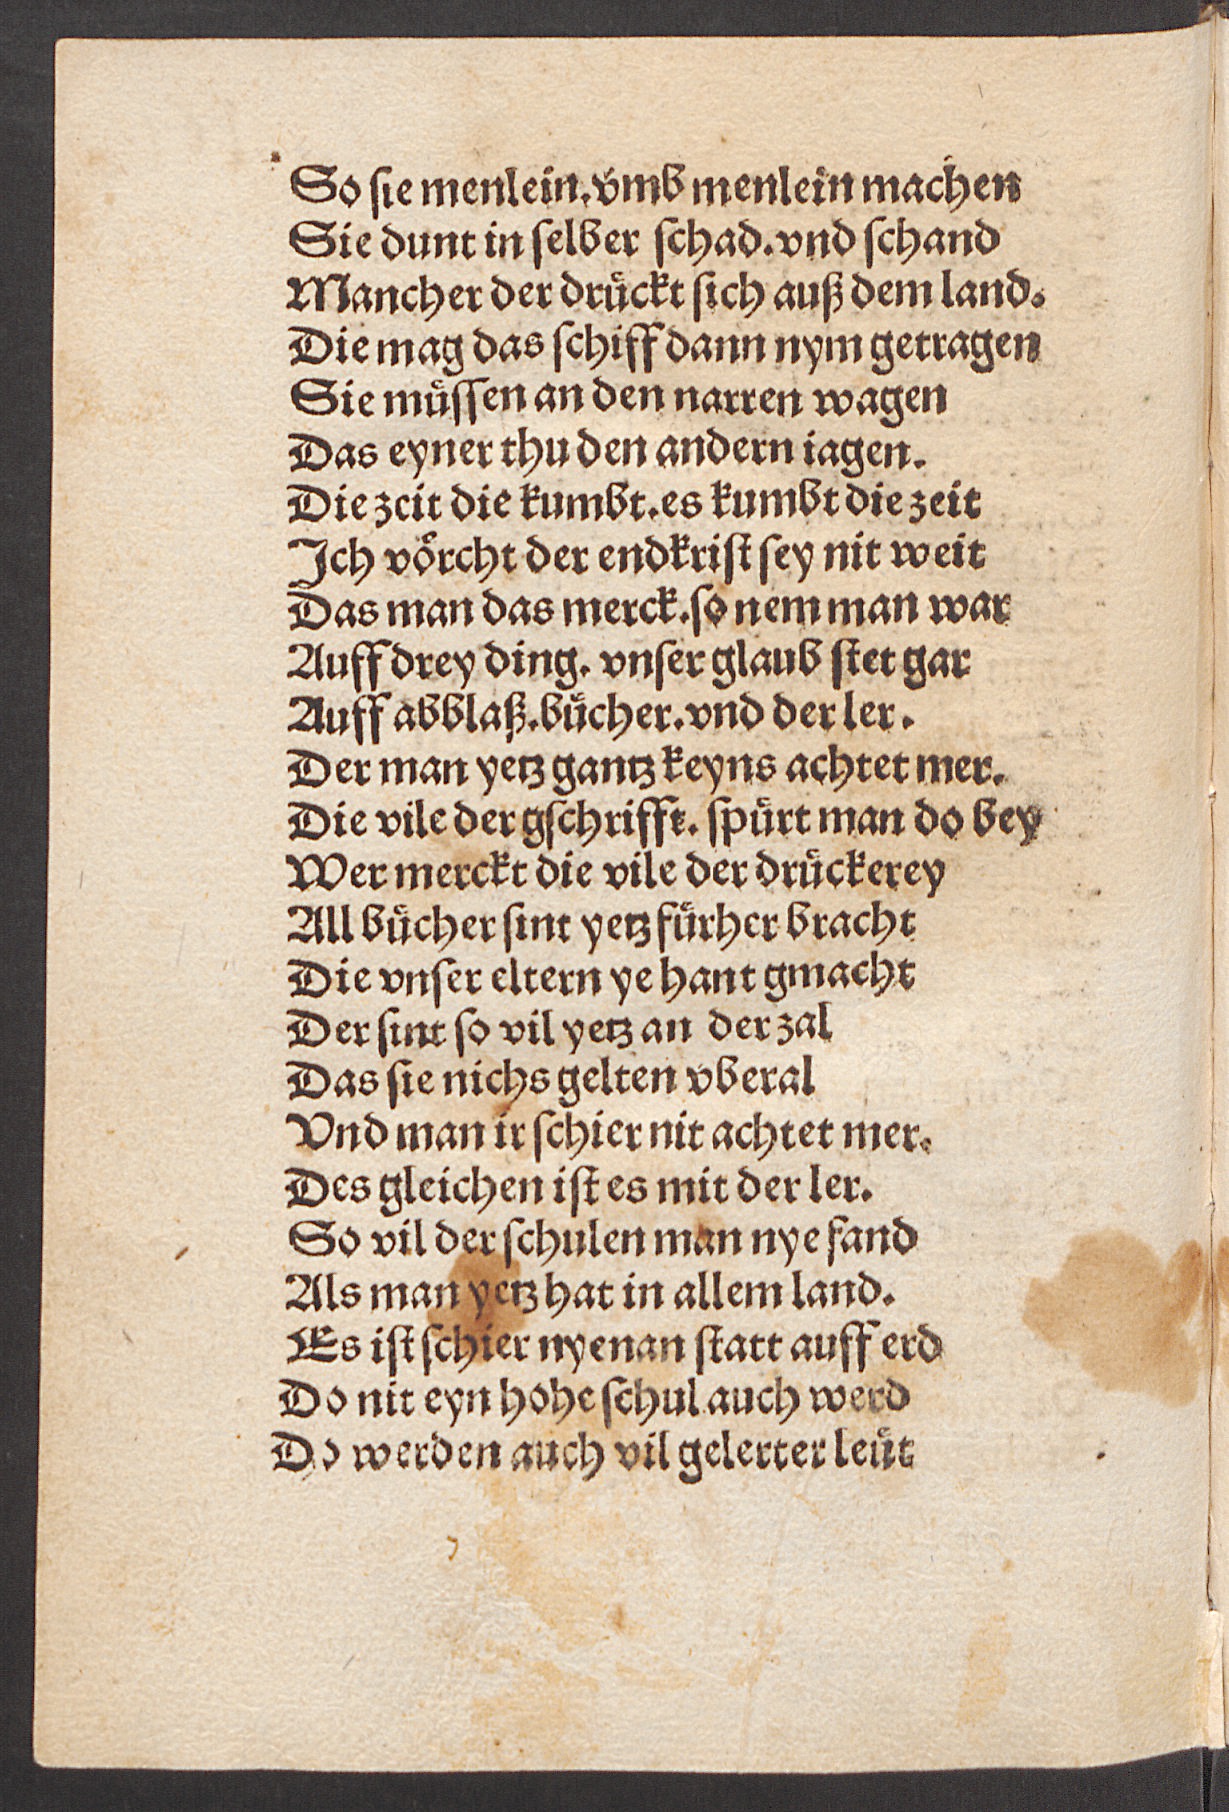 So ſie menlein. vmb menlein machen
Sie dunt in ſelber ſchad. vnd ſchand
Mancher der druͤckt ſich auß dem land.
Die mag das ſchiff dann nym getragen
Sie muͤſſen an den narren wagen
Das eyner thu den andern iagen.
Die zcit die kumbt. es kumbt die zeit
Ich voͤrcht der endkriſt ſey nit weit
Das man das merck. ſo nem man war
Auff drey ding. vnſer glaub ſtet gar
Auff abblaß. buͤcher. vnd der ler.
Der man yetz gantz keyns achtet mer.
Die vile der gſchrifft. ſpuͤrt man do bey
Wer merckt die vile der druͤckerey
All buͤcher ſint yetz fuͤrher bracht
Die vnſer eltern ye hant gmacht
Der ſint ſo vil yetz an der zal
Das ſie nichs gelten vberal
Vnd man ir ſchier nit achtet mer.
Des gleichen iſt es mit der ler.
So vil der ſchulen man nye fand
Als man yetz hat in allem land.
Es iſt ſchier nyenan ſtatt auff erd
Do nit eyn hohe ſchul auch werd
Do werden auch vil gelerter leuͤt